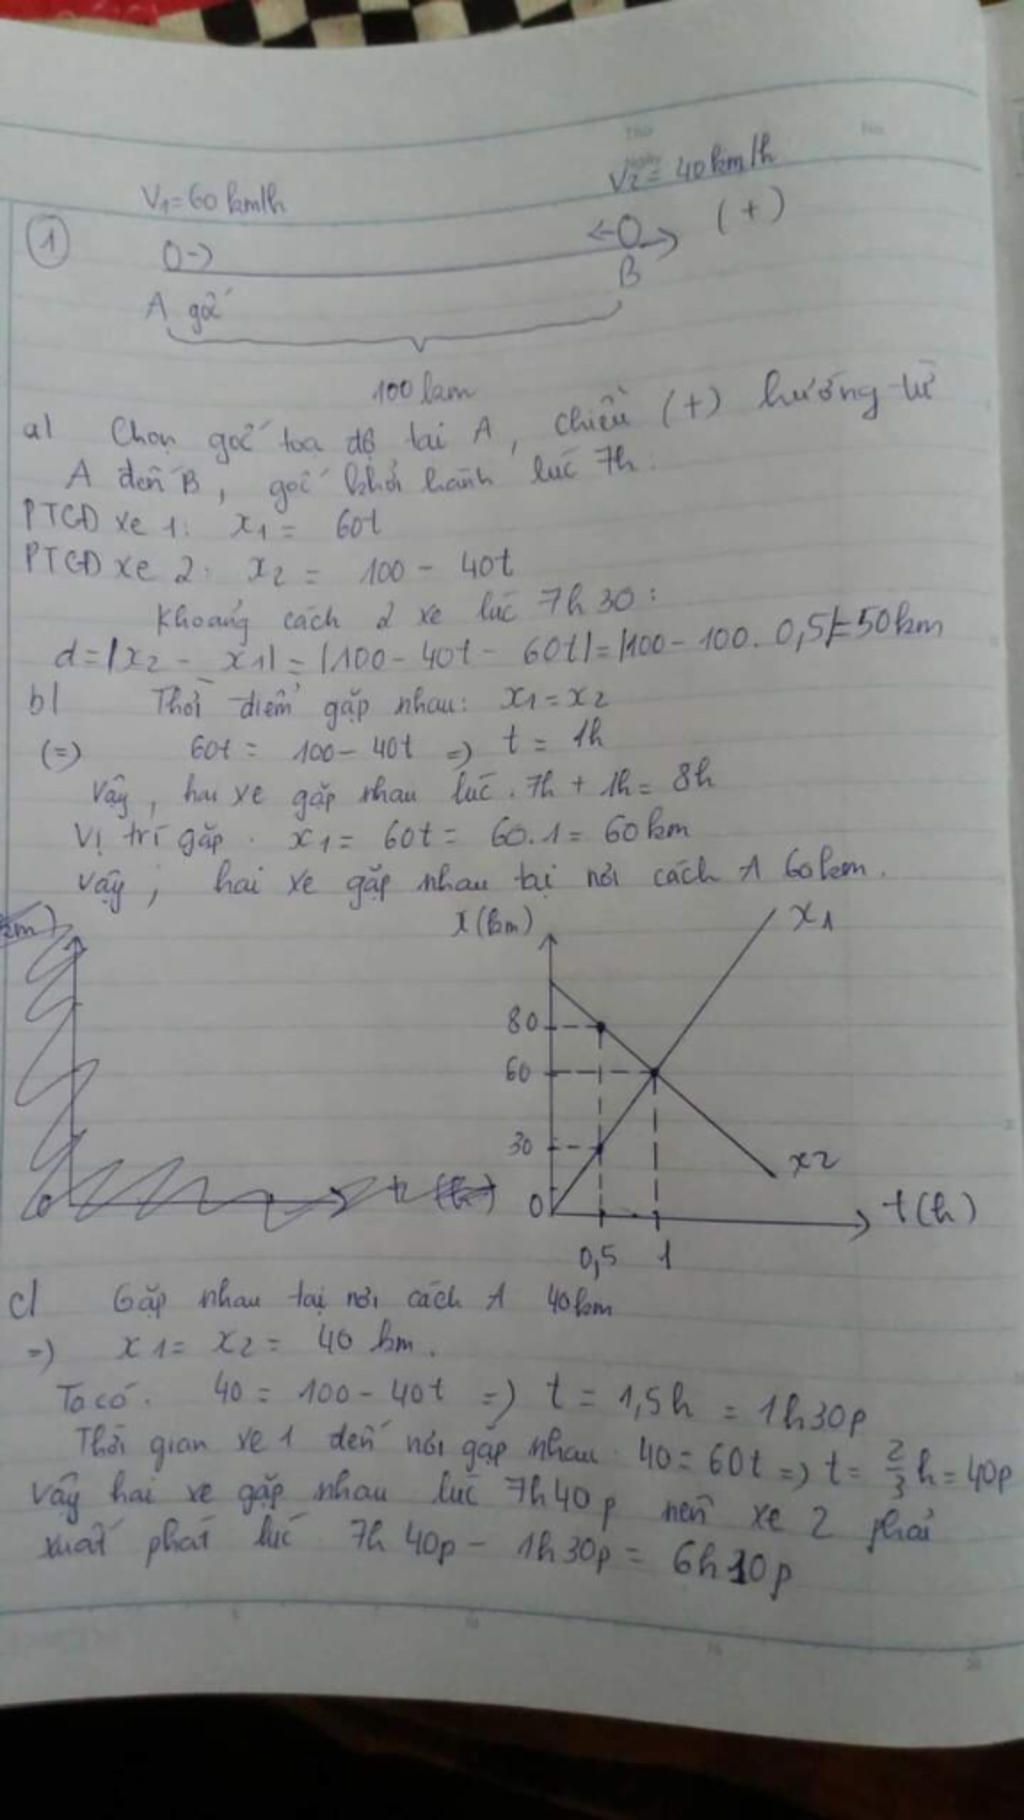 V₁=60km/h
V₂=40km/h
1
(+)
A gốc
B
100 km
a/ Chọn gốc tọa độ tại A, chiều (+) hướng từ
A đến B, gốc khởi hành lúc 7h.
PTCĐ xe 1: x₁ = 60t
PTCĐ xe 2: x₂ = 100 - 40t
Khoảng cách 2 xe lúc 7h30:
d=|x₂ - x₁| = |100 - 40t - 60t| = |100 - 100.0,5|=50km
b/ Thời điểm gặp nhau: x₁=x₂
(=) 60t = 100 - 40t =) t = 1h
Vậy, hai xe gặp nhau lúc. 7h + 1h = 8h
Vị trí gặp. x₁ = 60t = 60.1 = 60km
Vậy; hai xe gặp nhau tại nơi cách A 60km.
x(km)
x₁
80
60
30
x₂
0
t(h)
0,5 1
c/ Gặp nhau tại nơi cách A 40km
=) x₁ = x₂ = 40 km.
Ta có. 40 = 100 - 40t =) t = 1,5h = 1h30p
Thời gian xe 1 đến nơi gặp nhau. 40 = 60t =) t = 2/3h = 40p
Vậy hai xe gặp nhau lúc 7h40p nên xe 2 phải
xuất phát lúc 7h 40p - 1h30p = 6h10p